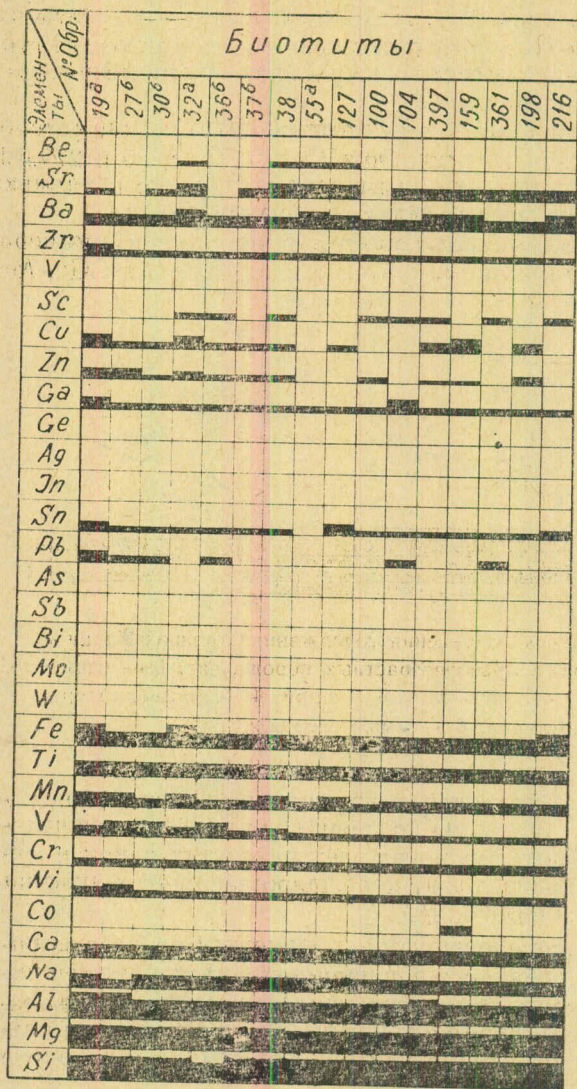 № Обр.
Элемен-
ты
Биотиты
19а 27б 30б 32а 36б 37б 38 55а 127 100 104 397 159 361 198 216
Be
Sr
Ba
Zr
V
Sc
Cu
Zn
Ga
Ge
Ag
Jn
Sn
Pb
As
Sb
Bi
Mo
W
Fe
Ti
Mn
V
Cr
Ni
Co
Ca
Na
Al
Mg
Si